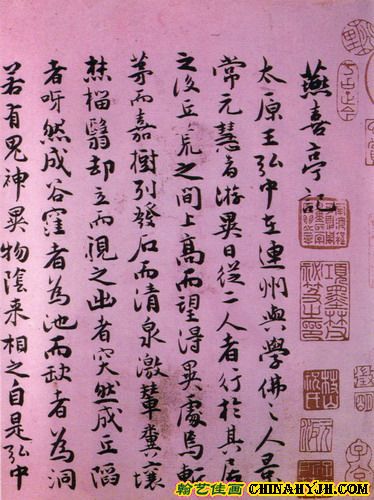 燕喜亭記
太原王弘中在連州與學佛〻人景
常元慧者游異日從二人者行於其居
之後丘荒之間上高而望得異處焉斬
茅而嘉樹列發石而清泉激輦糞壤
焚椔翳却立而視之出者突然成丘陷
者呀然成谷窪者為池而缺者為洞
若有鬼神異物陰來相之自是弘中
項墨林父祕笈之印
翰艺佳画
WWW.CHINAHYJH.COM